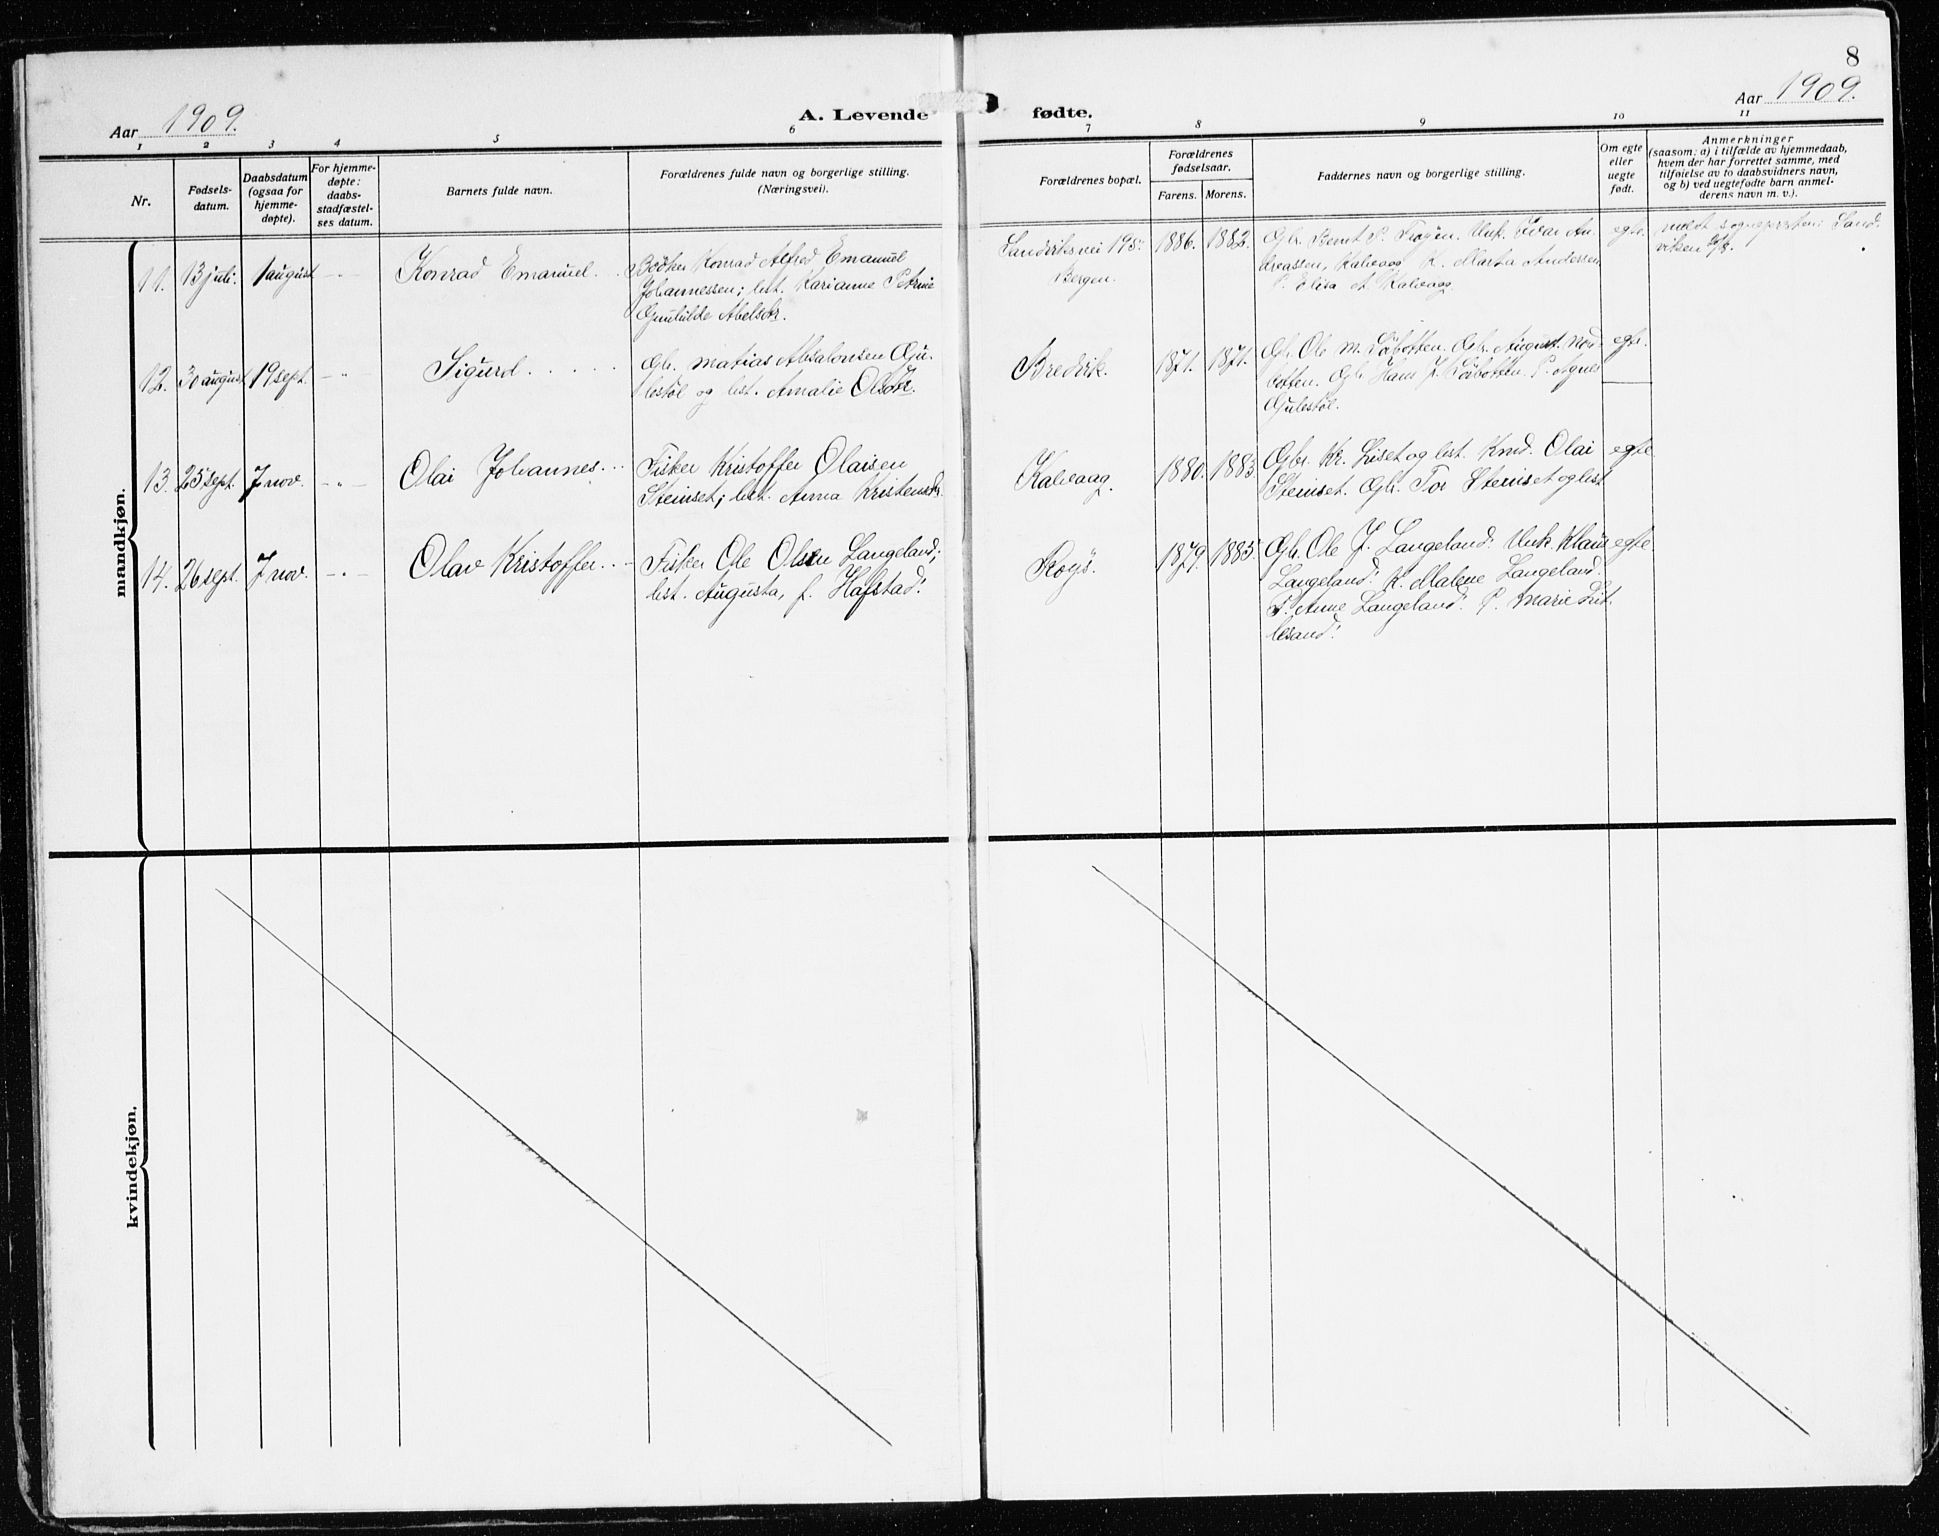 8
Aar 1909.
A. Levende fødte.
Aar 1909.
1 2 3 4 5 6 7 8 9 10 11
Nr.
Fødsels-
datum.
Daabsdatum
(ogsaa for
hjemme-
døpte).
For hjemme-
døpte:
daabs-
stadfæstel-
ses datum.
Barnets fulde navn.
Forældrenes fulde navn og borgerlige stilling.
(Næringsvei).
Forældrenes bopæl.
Forældrenes
fødselsaar.
Farens. Morens.
Faddernes navn og borgerlige stilling.
Om egte
eller
uegte
født.
Anmerkninger
(saasom: a) i tilfælde av hjemmedaab,
hvem der har forrettet samme, med
tilføielse av to daabsvidners navn,
og b) ved uegtefødte barn anmel-
derens navn m. v.).
mandkjøn.
11. 13 juli. 1 august - " - Konrad Emanuel. . .
Bødker Konrad Alfred Emanuel
Johannessen; hst. Karianne Petrine
Gunhilde Abelsdr.
Sandviksvei 195.
Bergen.
1886. 1882.
Gbr. Bernt P. Frøyen. Unk. Ivar An-
dreassen, Kalvaag. K. Marta Andersen
P. Elisa A. Kalvaag.
egte.
meldt sognepresten i Sand-
viken
12. 30 august 19 sept. - " - Sigurd . . . . .
Gbr. Matias Absalonsen Gju-
lestøl og hst. Amalie Olsdtr.
Bredvik.
1871. 1871.
Gbr. Ole M. Sørbotten. Gbr. August Nor-
botten. Gbr. Hans J. Sørbotten. P. Agnes
Gulestøl.
egte.
13. 25 sept. 7 nov. - " - Olai Johannes. . .
Fisker Kristoffer Olaisen
Steinset; hst. Anna Kristensdr.
Kalvaag.
1880. 1883.
Gbr. Kr. Liset og hst. Knud. Olai
Steinset. Gbr. Tor Steinset og hst.
egte
14. 26 sept. 7 nov. - " - Olav Kristoffer. . -
Fisker Ole Olsen Langeland;
hst. Augusta, f. Hafstad.
1879. 1885.
Gbr. Ole J. Langeland. Unk. Klaus
Langeland. K. Malene Langeland.
P. Anne Langeland. P. Marie Lit-
lesand.
egte.
kvindekjøn.